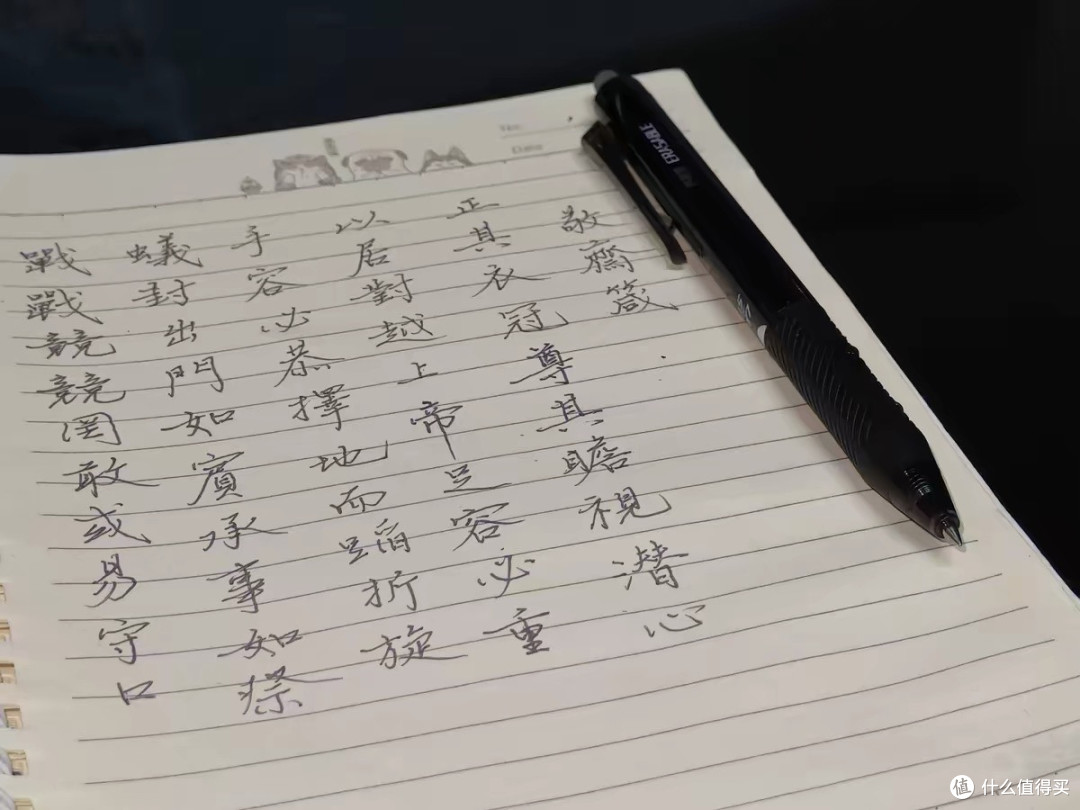 敬齋箴
正其衣冠尊其瞻視潜心
以居對越上帝足容必重
手容必恭擇地而蹈折旋
蟻封出門如賓承事如祭
戰戰競競罔敢或易守口
No:
Date
ERASABLE
值 什么值得买